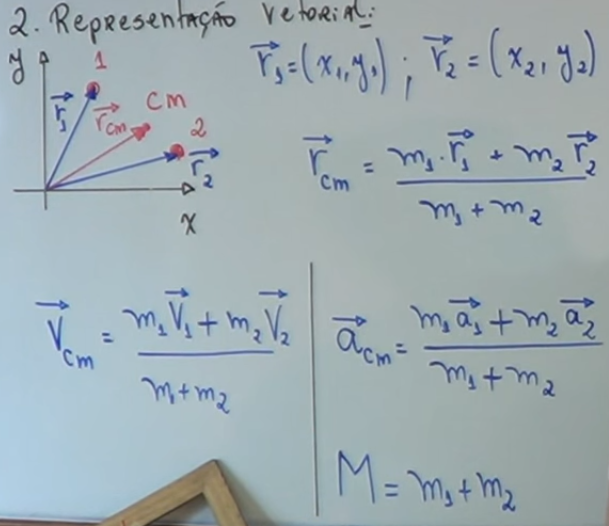 2. Representação Vetorial:
y
1
r⃗₁
r⃗cm
cm
2
r⃗₂
x
r⃗₁ = (x₁, y₁) ; r⃗₂ = (x₂, y₂)
r⃗cm = m₁·r⃗₁ + m₂ r⃗₂
m₁ + m₂
V⃗cm = m₁V⃗₁ + m₂V⃗₂
m₁ + m₂
a⃗cm = m₁a⃗₁ + m₂a⃗₂
m₁ + m₂
M = m₁ + m₂